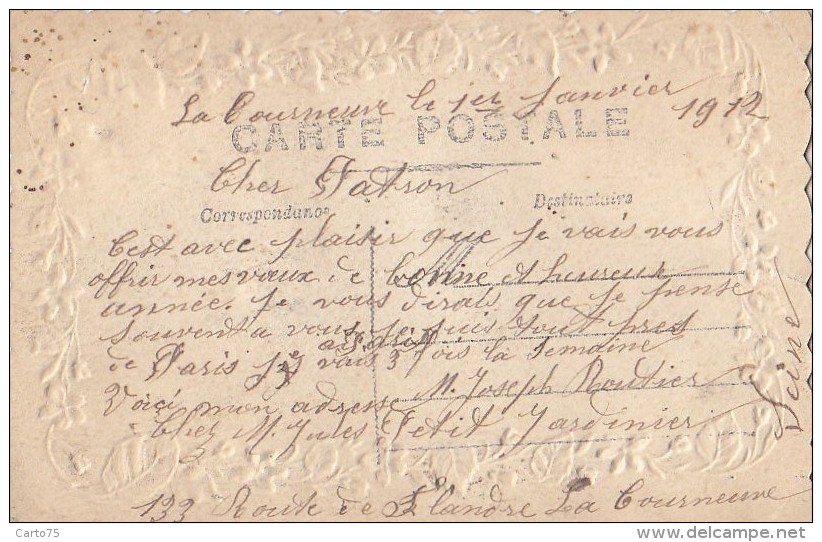 La Courneuve le 1er Janvier 1912
CARTE POSTALE
Cher Patron
Correspondance
Destinataire
C'est avec plaisir que je vais vous
offrir mes vœux de bonne et heureux
année. Je vous dirais que je pense
souvent a vous je suis tout pres
de Paris j'y vais 3 fois la semaine
Voici mon adresse M. Joseph Routier
Chez M. Jules Petit Jardinier
133 Route de Flandre La Courneuve
Seine
Carto75
www.delcampe.net